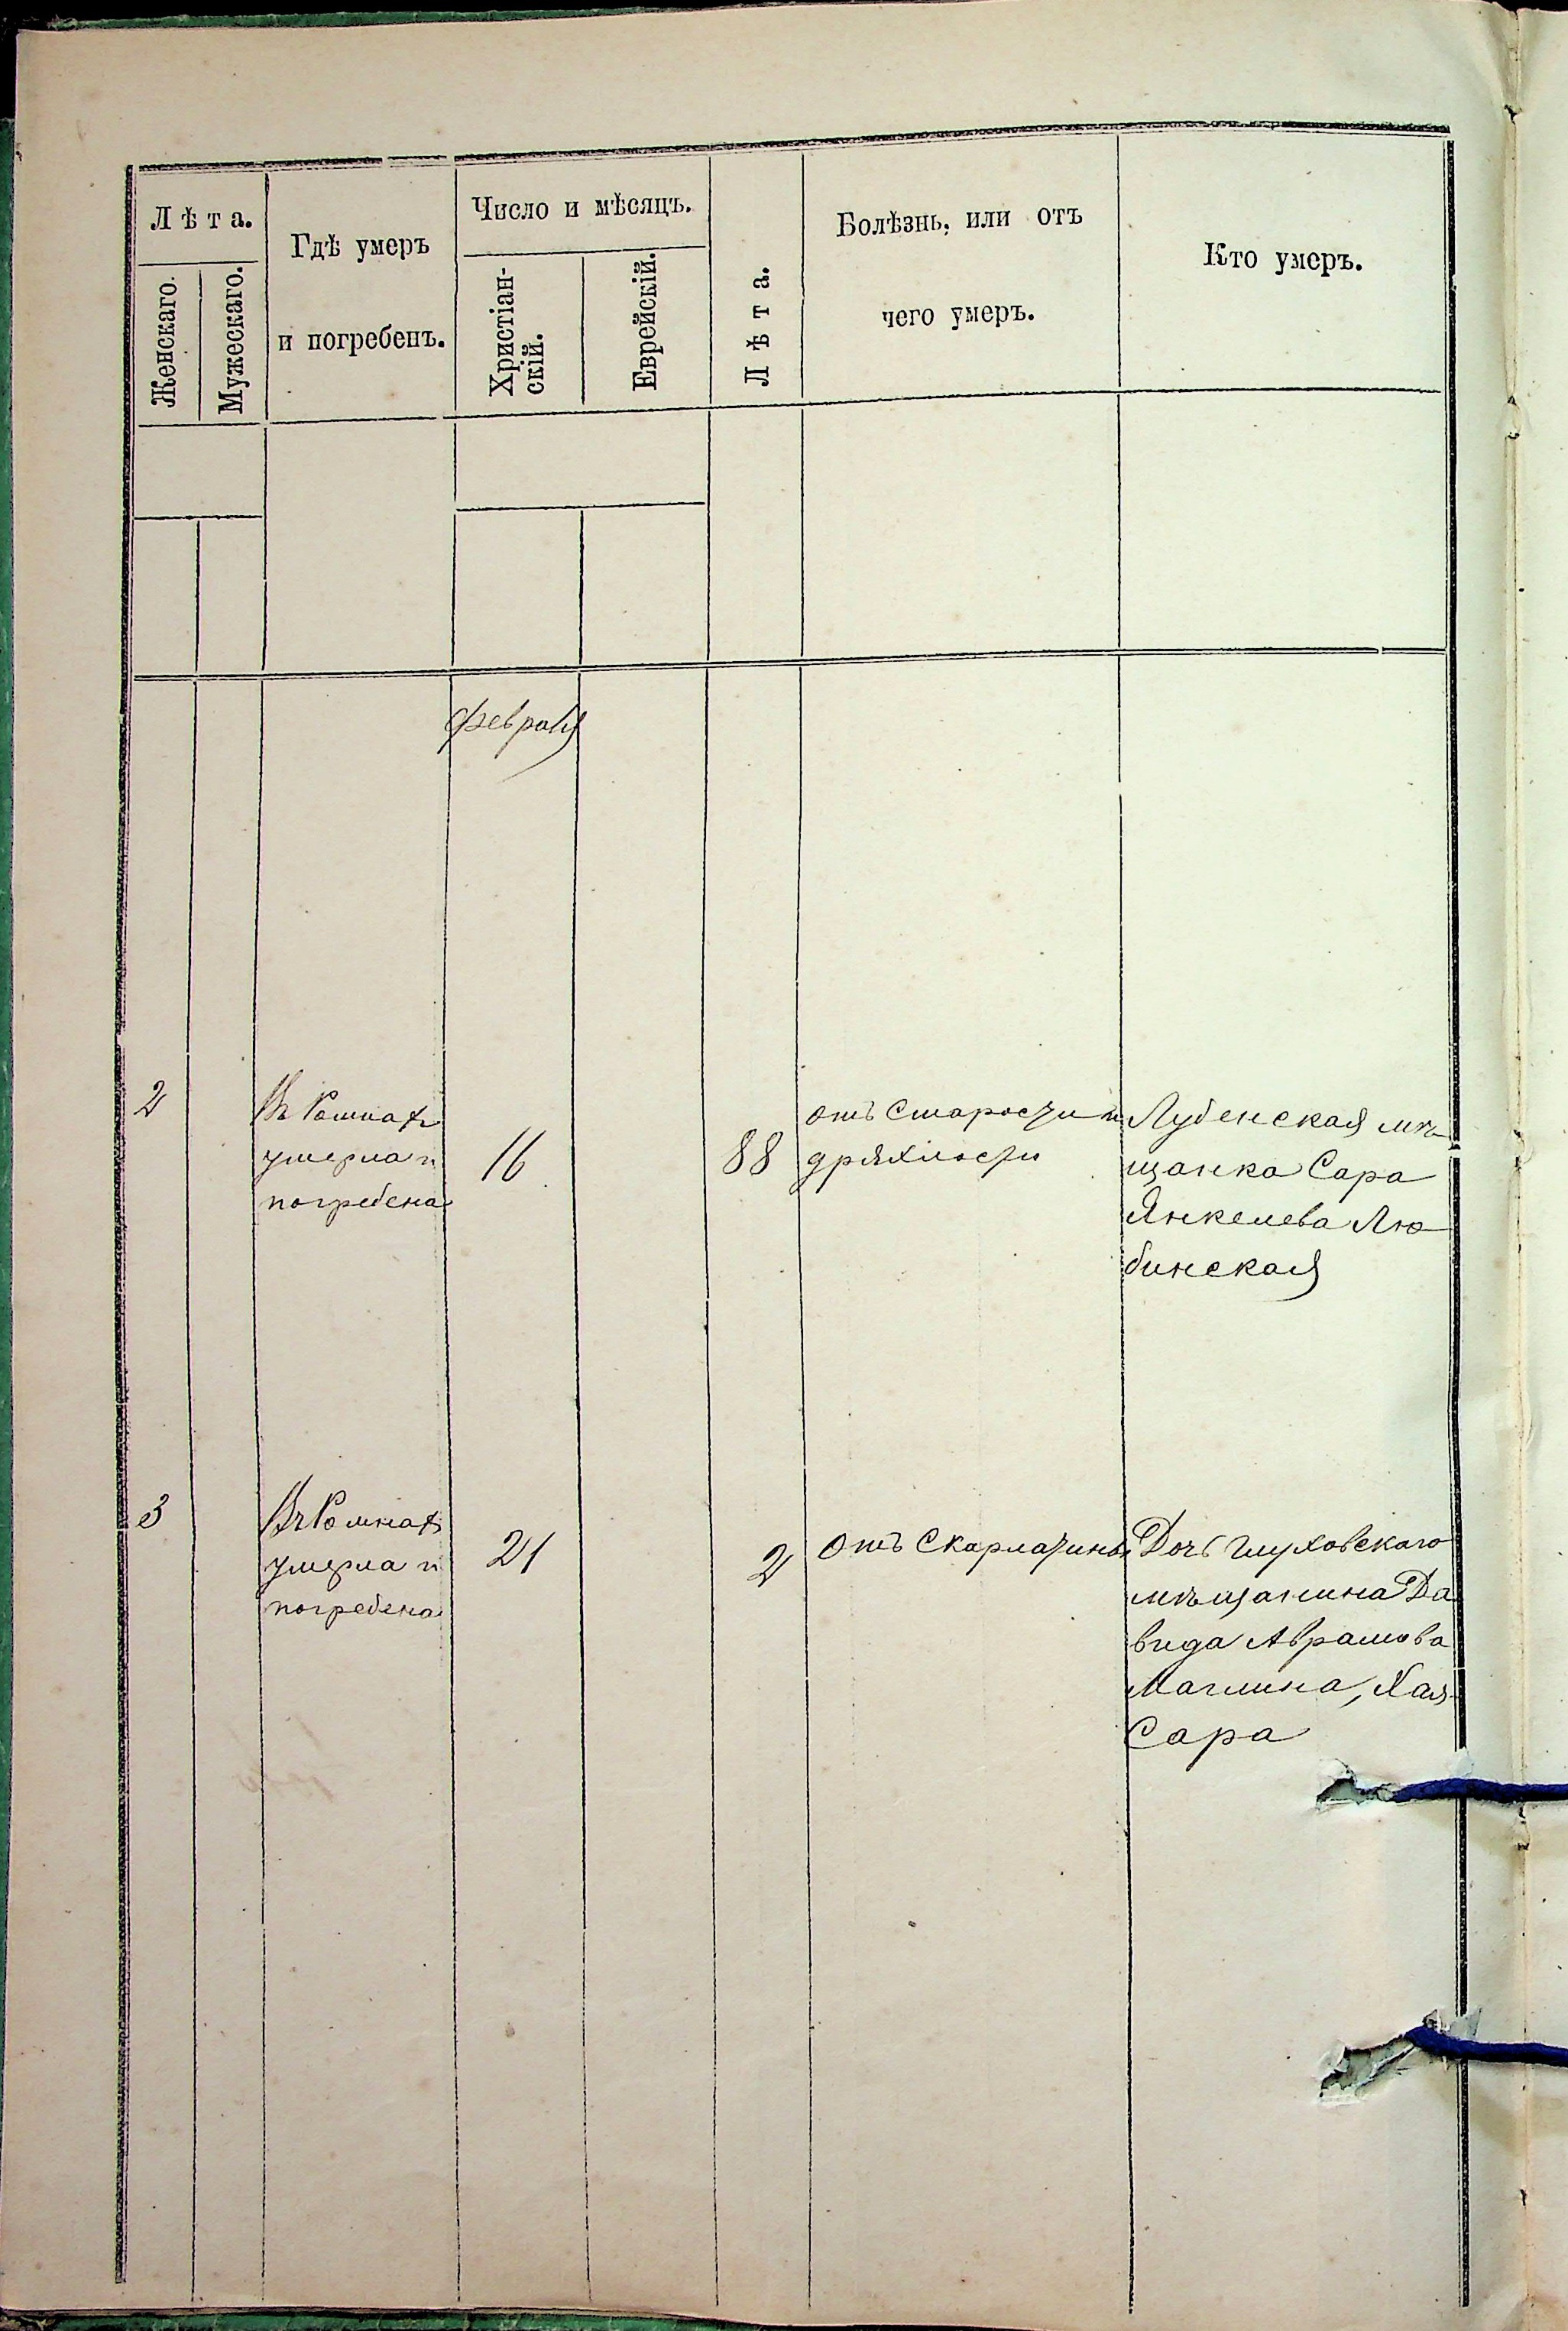 Лѣта.
Женскаго.
Мужескаго.
Гдѣ умеръ
и погребенъ.
Число и мѣсяцъ.
Христіан-
скій.
Еврейскій.
Лѣта.
Болѣзнь, или отъ
чего умеръ.
Кто умеръ.
Февраля
2
Въ Ромнахъ
умерла и
погребена
16
88
отъ Старости и
дряхлости
Лубенская мѣ-
щанка Сара
Янкелева Лю-
бинская
3
Въ Ромнахъ
умерла и
погребена
21
2
Отъ Скарлатины
Дочь Глуховскаго
мѣщанина Да
вида Аврамова
Маглина, Хая-
Сара